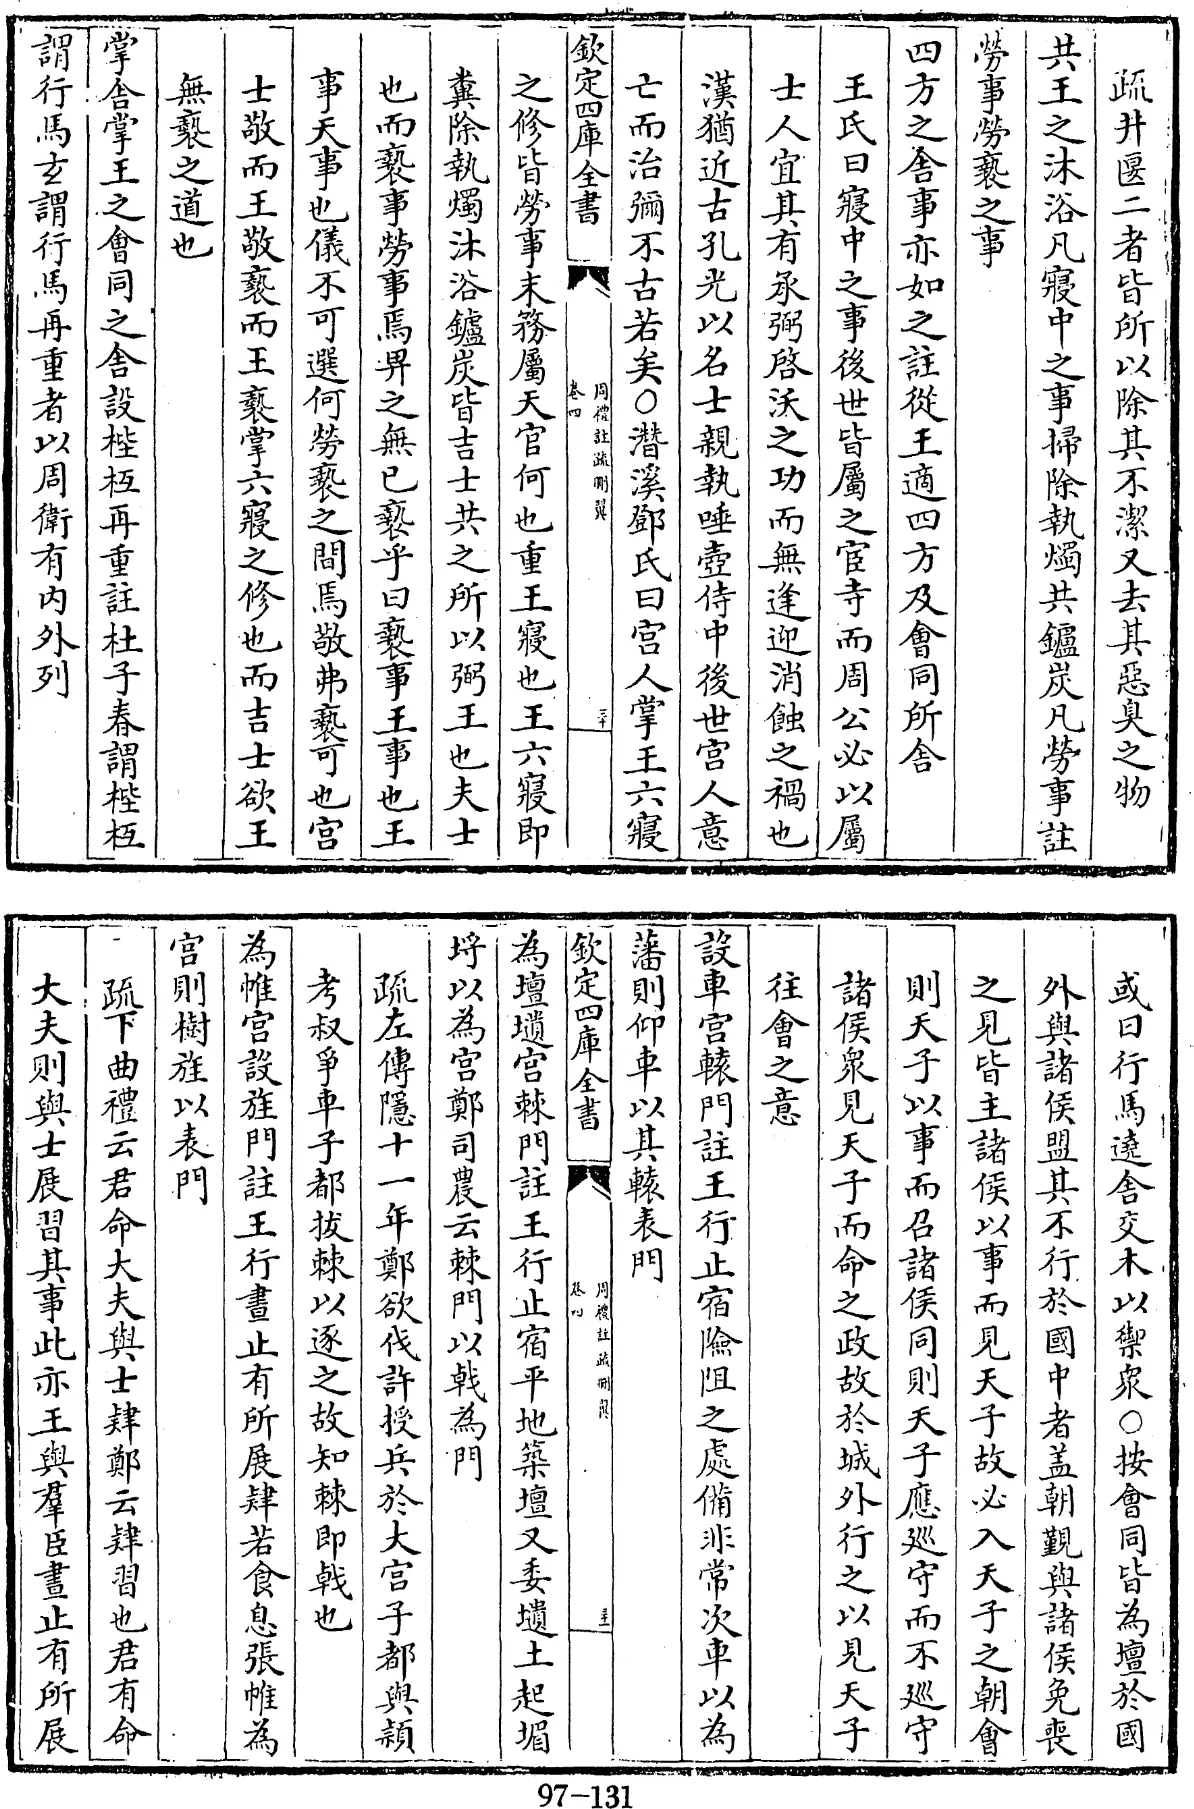 疏井匽二者皆所以除其不潔又去其惡臭之物
共王之沐浴凡寢中之事掃除執燭共鑪炭凡勞事註
勞事勞褻之事
四方之舍事亦如之註從王適四方及會同所舍
王氏曰寢中之事後世皆屬之宦寺而周公必以屬
士人宜其有承弼啓沃之功而無逢迎消蝕之禍也
漢猶近古孔光以名士親執唾壺侍中後世宫人意
亡而治彌不古若矣○潛溪鄧氏曰宫人掌王六寢
欽定四庫全書
周禮註疏刪翼
卷四
三十
之修皆勞事末務屬天官何也重王寢也王六寢即
糞除執燭沐浴鑪炭皆吉士共之所以弼王也夫士
也而褻事勞事焉畀之無已褻乎曰褻事王事也王
事天事也儀不可選何勞褻之間焉敬弗褻可也宫
士敬而王敬褻而王褻掌六寢之修也而吉士欲王
無褻之道也
掌舍掌王之會同之舍設梐枑再重註杜子春謂梐枑
謂行馬玄謂行馬再重者以周衛有内外列
或曰行馬遶舍交木以禦衆○按會同皆為壇於國
外與諸侯盟其不行於國中者盖朝覲與諸侯免喪
之見皆主諸侯以事而見天子故必入天子之朝會
則天子以事而召諸侯同則天子應廵守而不廵守
諸侯衆見天子而命之政故於城外行之以見天子
往會之意
設車宫轅門註王行止宿險阻之處備非常次車以為
藩則仰車以其轅表門
欽定四庫全書
周禮註疏刪翼
卷四
三十一
為壇壝宫棘門註王行止宿平地築壇又委壝土起堳
埒以為宫鄭司農云棘門以㦸為門
疏左傳隱十一年鄭欲伐許授兵於大宫子都與潁
考叔爭車子都拔棘以逐之故知棘即㦸也
為帷宫設旌門註王行晝止有所展肄若食息張帷為
宫則樹旌以表門
疏下曲禮云君命大夫與士肄鄭云肄習也君有命
大夫則與士展習其事此亦王與羣臣晝止有所展
97-131